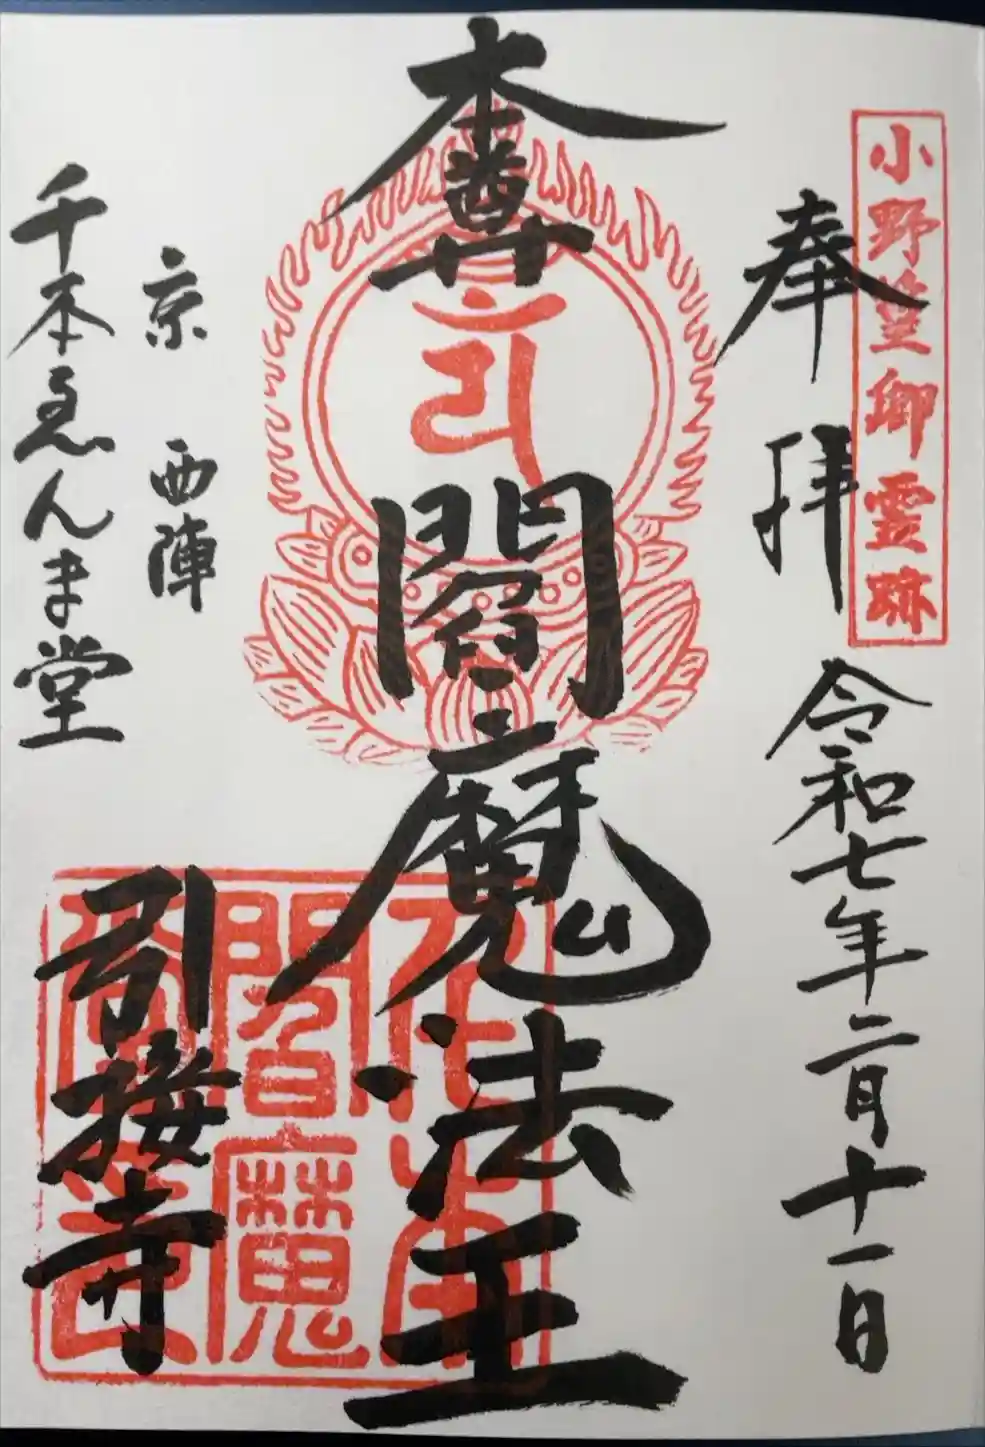 小野篁卿霊跡
奉拝
令和七年二月十一日
本尊
閻魔法王
京 西陣
千本ゑんま堂
引接寺
閻魔